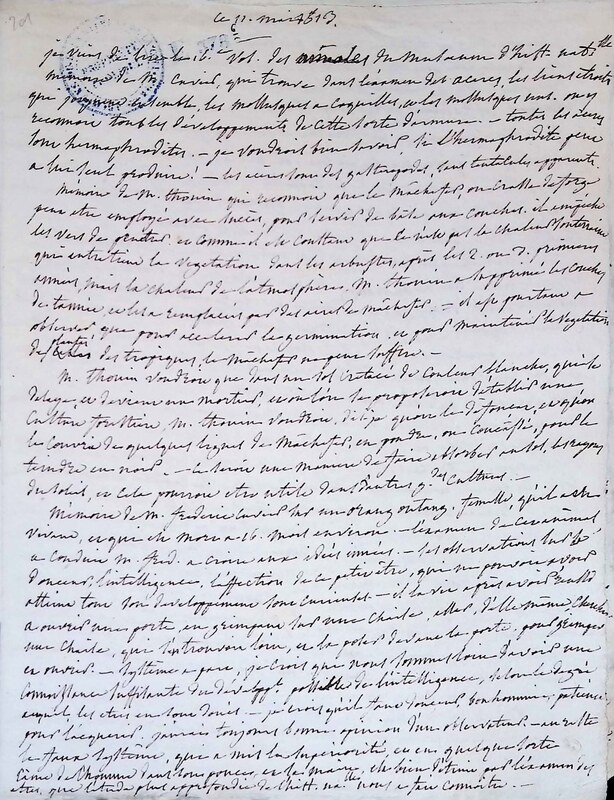 701
ce 31. mai 1813.
je viens de lire le 16 Vol. des annales du Museum d'hist. nat.lle
memoire de M. Cuvier, qui trouve dans l'examen des aceres, les liens étroits
que joignent ensemble, les mollusques a coquilles, et les mollusques nuds. on y
reconnoit tous les développements de cette sorte d'armure. – toutes les aceres
sont hermaphrodites. – je voudrois bien savoir si l'hermaphrodite peut
a lui seul produire! – les aceres sont des gasteropodes, sans tentacules apparents.
Memoire de M. thouin qui reconnoit que le mâchefer, ou crasse de forge
peut etre employé avec succès, pour servir de base aux couches. il empêche
les vers de penetrer, et comme il est constant que ce n'est pas la chaleur interieure
qui entretient la vegetation dans les arbustes, après les 2. ou 3. premieres
années, mais la chaleur de l'atmosphere. M. thouin a supprimé les couches
de tannée, et les a remplacées par des aires de mâchefer. – il est pourtant a
observer que pour accelerer la germination, et pour maintenir la vegetation
des plantes des tropiques, le mâchefer ne peut suffire. –
M. thouin voudroit que dans un sol cretacé de couleur blanche, qui se
delaye, et devient un mortier, et ou l'on se proposeroit d'établir une
culture fruitiere, M. thouin voudroit, dis-je qu'on le défonce, et qu'on
le couvrit de quelques lignes de mâchefer, en poudre, ou concassé, pour le
teindre en noir. – ce seroit une maniere de faire absorber au sol, les rayons
du soleil, et cela pourroit etre utile dans d'autres g.des cultures. –
Memoire de M. frederic Cuvier sur un orang outang femelle, qu'il a vu
vivant, et qui est mort a 16. mois environ. – l'examen de cet animal
a conduit M. fred. a croire aux idées innées. – ses observations sur la
douceur, l'intelligence, l'affection de ce petit être, qui ne pouvoit avoir
atteint tout son developpement sont curieuses. – il la vit après avoir
a ouvrir une porte, en grimpant sur une chaise, aller d'elle même chercher
une chaise, qui s'en trouvoit loin, et la poser devant la porte pour grimper
et ouvrir. – systême a part, je crois que nous sommes loin d'avoir une
connoissance suffisante du dévelop.t possible de l'intelligence, selon le degré
auquel, les etres en sont doués. – je crois qu'il faut douceur, bonhommie, patience
pour l'acquerir. j'aurois toujours bonne opinion d'un observateur – au reste
le faux systême, qui a mis la superiorité, et en quelque sorte
l'âme de l'homme dans son pouce, et sa main, est bien détruit par l'examen des
etres, que l'etude plus approfondie de l'hist. na.lle nous a fait connoitre. –